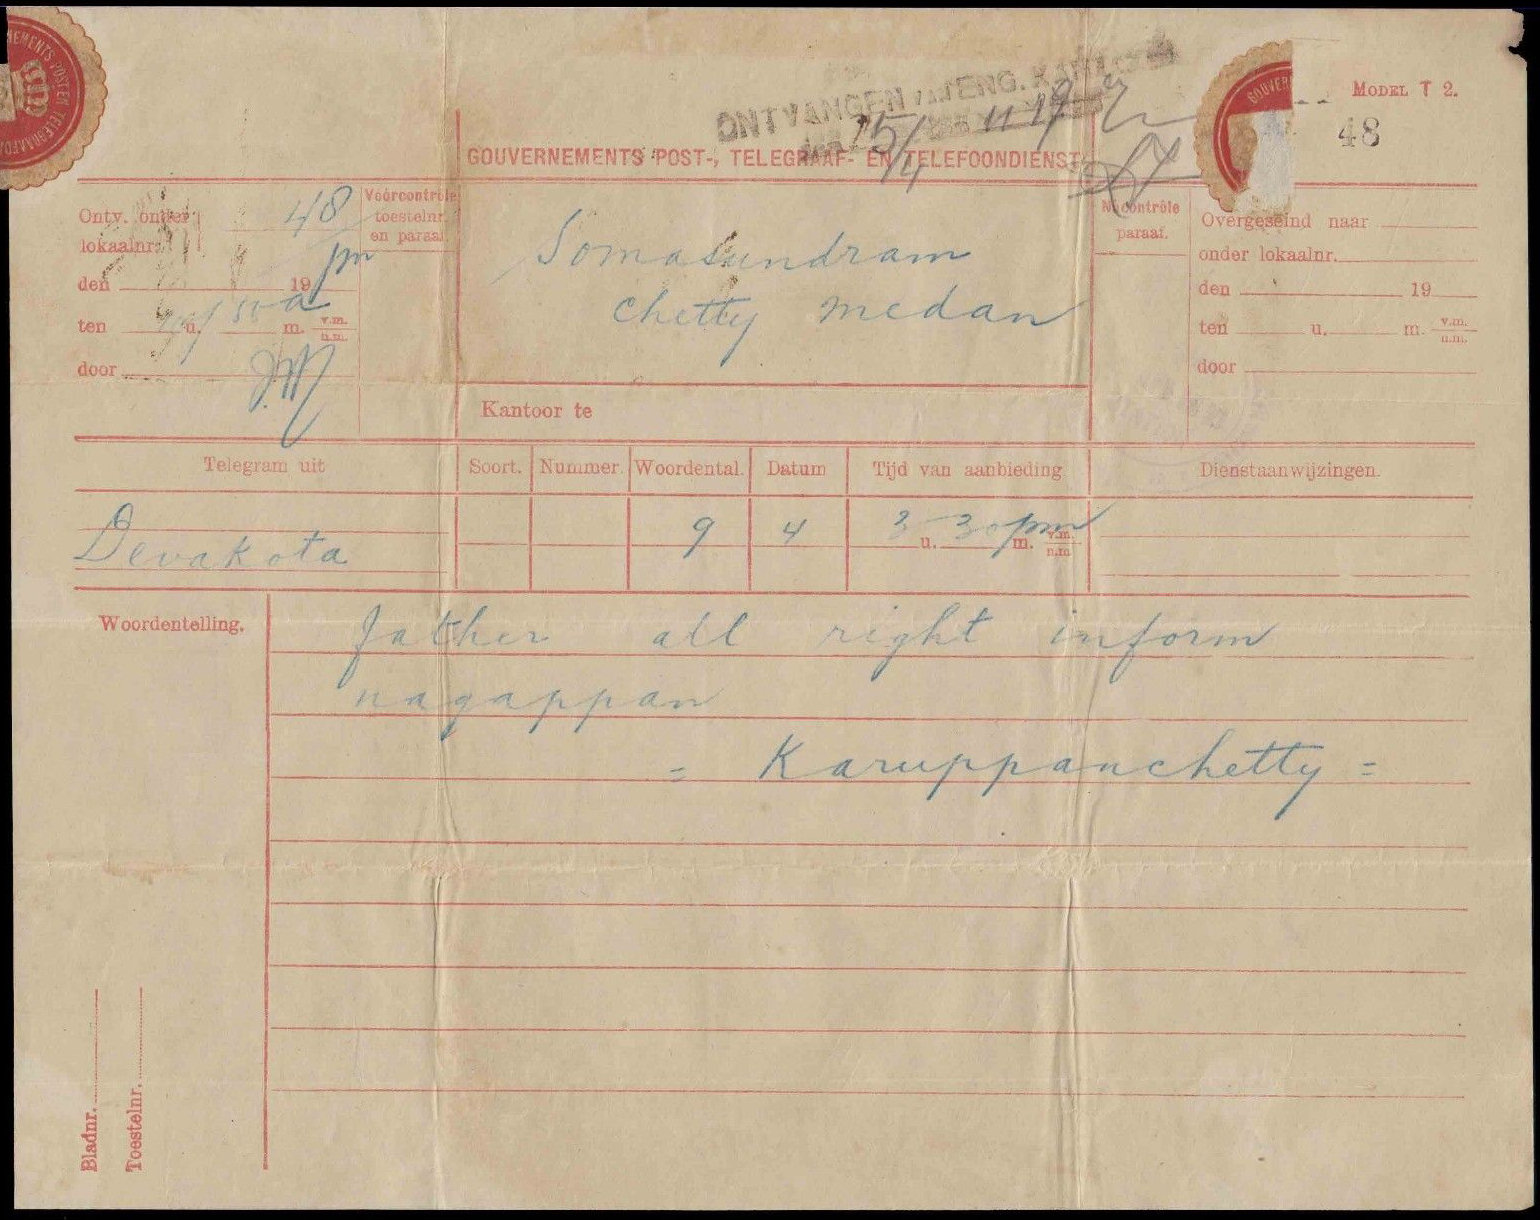 MODEL T 2.
48
ONTVANGEN
GOUVERNEMENTS POST-, TELEGRAAF- EN TELEFOONDIENST
Ontv. onder
lokaalnr.
48
pm
den 19
ten u. m. v.m.
n.m.
door
Vóórcontrôle
toestelnr.
en paraaf.
Somasundram
chetty medan
Kantoor te
Nacontrôle
paraaf.
Overgeseind naar
onder lokaalnr.
den 19
ten u. m. v.m.
n.m.
door
Telegram uit Soort. Nummer. Woordental. Datum Tijd van aanbieding Dienstaanwijzingen.
Devakota 9 4 3 u. 30 pm m. v.m.
n.m.
Woordentelling.
father all right inform
nagappan
= Karuppanchetty =
Bladnr.
Toestelnr.